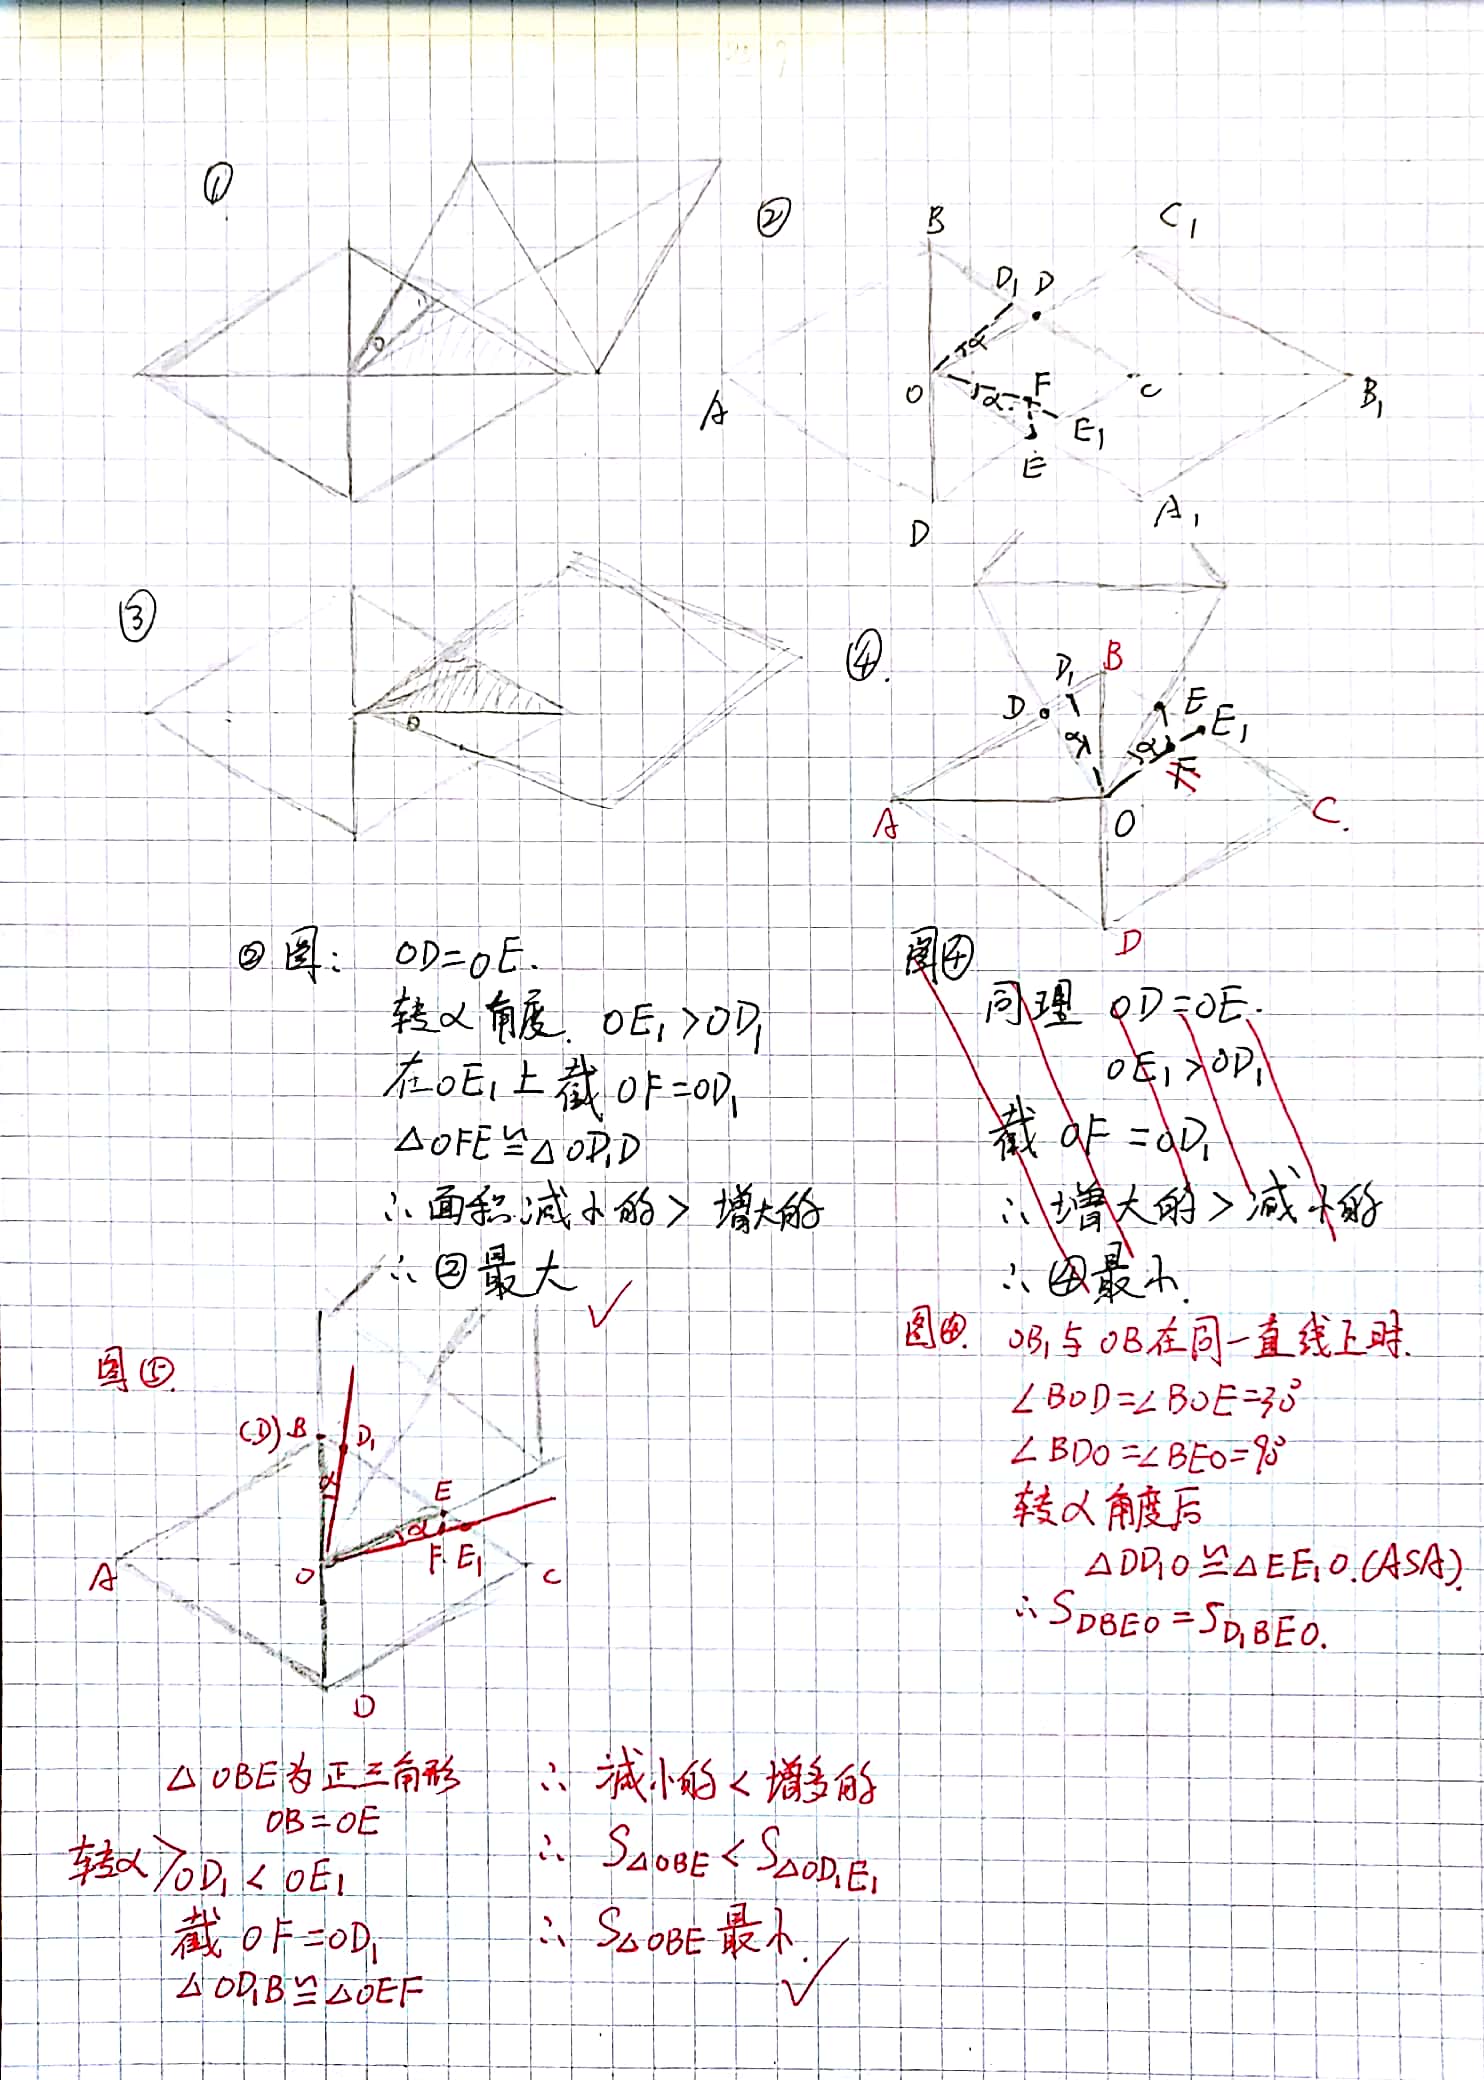 ①
②
B
C₁
D₁ D
α
A
O
α
F
C
B₁
E₁
E
D
A₁
O
③
O
④.
D₁
B
D
E
E₁
α
α
F
A
O
C.
D
②图: OD=OE.
转α角度. OE₁>OD₁
在OE₁上截OF=OD₁
△OFE≌△OD₁D
∴面积减小的>增大的
∴②最大
✓
图④
同理 OD=OE.
OE₁>OD₁
截 OF=OD₁
∴增大的>减小的
∴④最小.
图④. OB₁与OB在同一直线上时.
∠BOD=∠BOE=30°
∠BDO=∠BEO=90°
转α角度后
△DD₁O≌△EE₁O.(ASA).
∴S_DBEO=S_D₁BEO.
图⑤.
(D)B
D₁
α
E
α
A
O
F E₁
C
D
△OBE为正三角形
OB=OE
转α OD₁<OE₁
截 OF=OD₁
△OD₁B≌△OEF
∴ 减小的<增多的
∴ S△OBE<S△OD₁E₁
∴ S△OBE最小.
✓